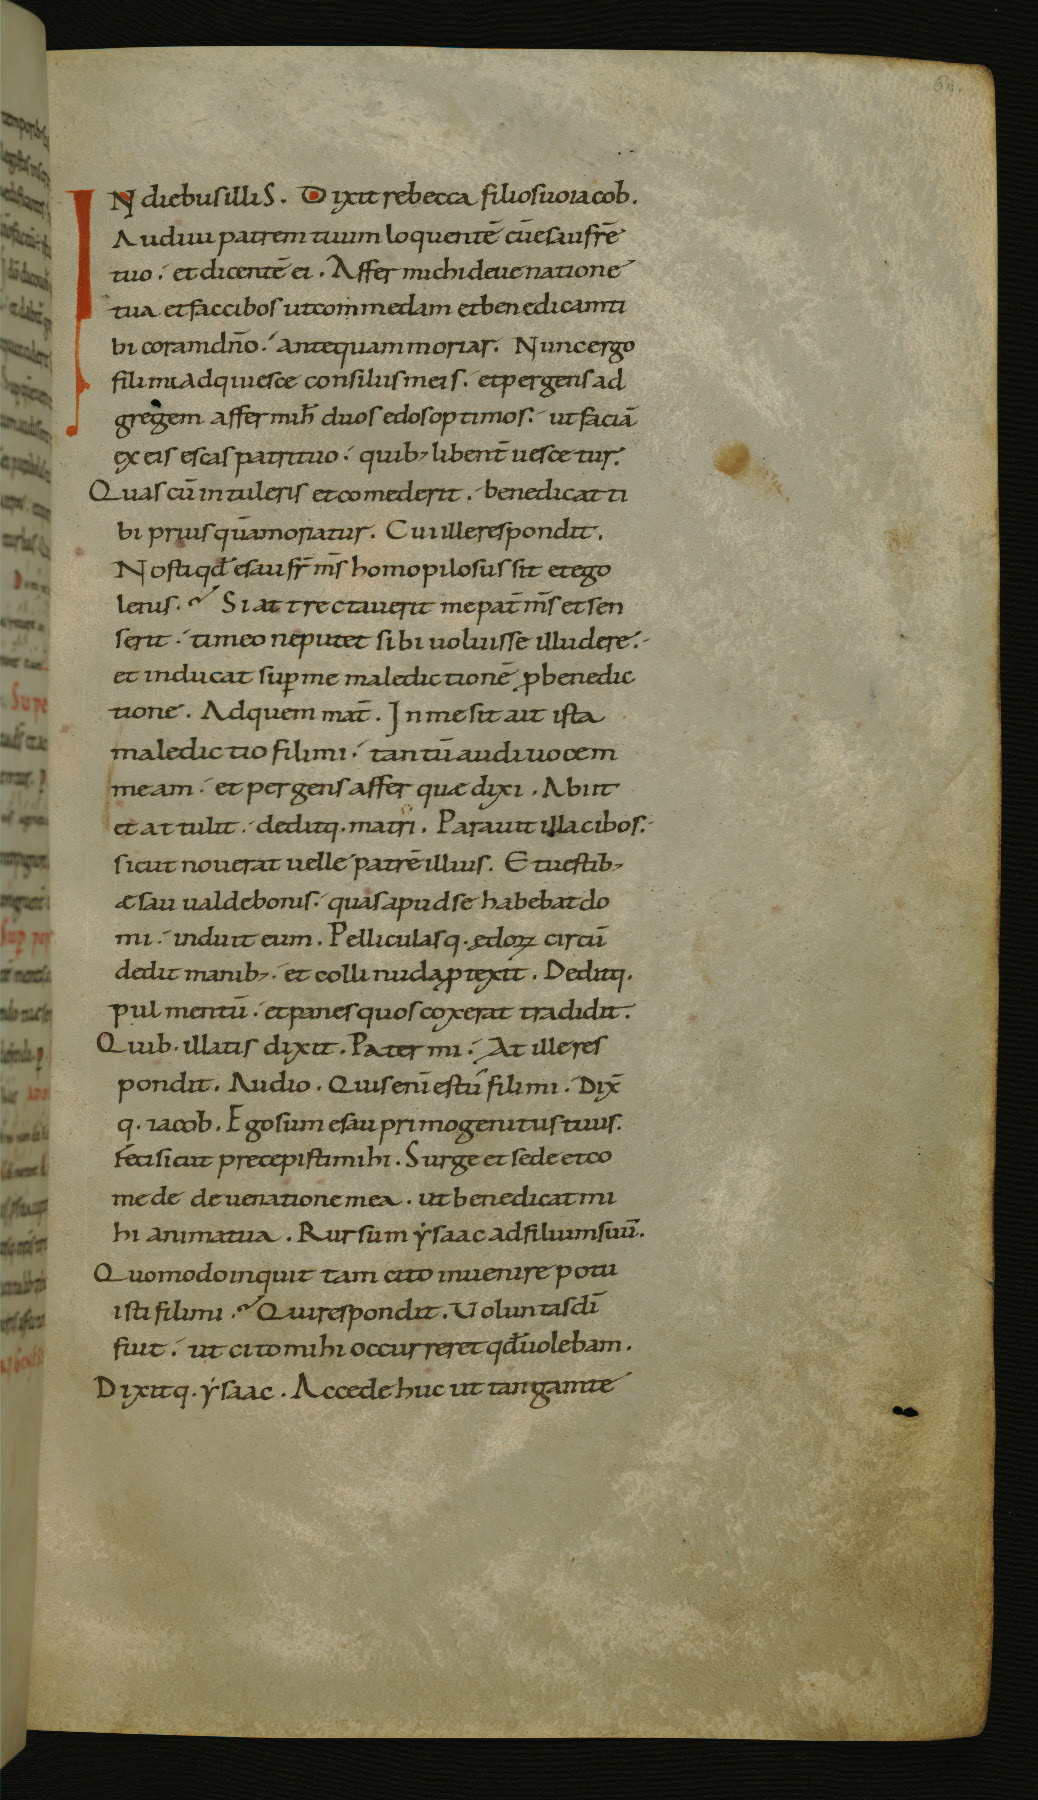 In diebus illis. Dixit rebecca filio suo iacob.
Audiui patrem tuum loquentē cū esau fr̄e
tuo. et dicentē ei. Affer michi de uenatione
tua et fac cibos ut commedam et benedicam ti
bi coram dn̄o. antequam moriar. Nunc ergo
fili mi adquiesce consiliis meis. et pergens ad
gregem affer mih̄ duos edos optimos. ut faciā
ex eis escas patri tuo. quib; libent̄ uescetur.
Quas cū intuleris et comederit. benedicat ti
bi priusquā moriatur. Cui ille respondit.
Nosti qd̄ esau fr̄ m̄s homo pilosus sit et ego
lenis. Si attrectauerit me pat̄ m̄s et sen
serit. timeo ne putet sibi uoluisse illudere.
et inducat sup̄ me maledictionē ꝓ benedic
tione. Ad quem mat̄. In me sit ait ista
maledictio fili mi. tantū audi uocem
meam. et pergens affer quæ dixi. Abiit
et attulit. deditq. matri. Parauit illa cibos.
sicut nouerat uelle patrē illius. Et uestib;
æsau ualde bonis. quas apud se habebat do
mi. induit eum. Pelliculasq. ędoꝝ circū
dedit manib;. et colli nuda ꝓtexit. Deditq.
pulmentū. et panes quos coxerat tradidit.
Quib. illatis dixit. Pater mi. At ille res
pondit. Audio. Quis eni̅ es tu fili mi. Dix̄
q. iacob. Ego sum esau primogenitus tuus.
feci sicut precepisti mihi. Surge et sede et co
mede de uenatione mea. ut benedicat mi
hi anima tua. Rursum ẏsaac ad filium suū.
Quomodo inquit tam cito inuenire potu
isti fili mi. Qui respondit. Uoluntas dī
fuit. ut cito mihi occurreret qd̄ uolebam.
Dixitq. ẏsaac. Accede huc ut tangam te